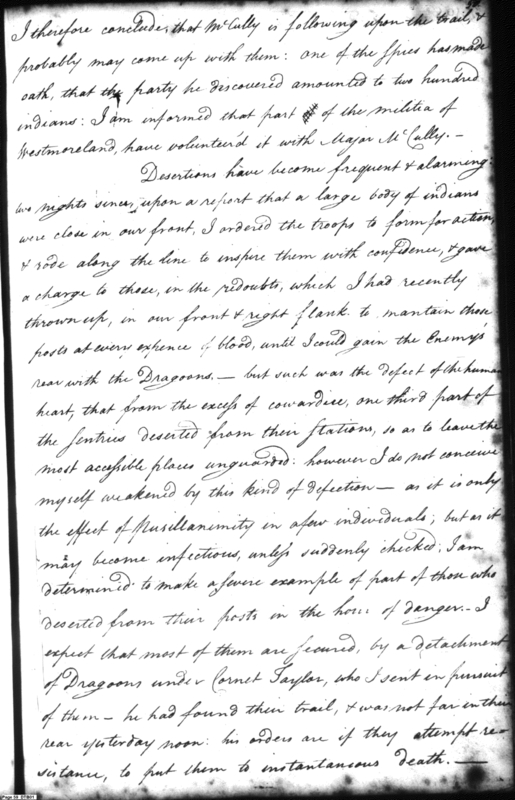 I therefore conclude, that McCully is following upon the trail, &
probably may come up with them: one of the spies has made
oath, that the party he descovered amounted to two hundred
indians: I am informed that part of the militia of
Westmoreland, have volunteer'd it with Major McCully. —
Desertions have become frequent & alarming:
two nights since, upon a report that a large body of indians
were close in our front, I ordered the troops to form for action,
& rode along the line to inspire them with confidence, & gave
a charge to those, in the redoubts, which I had recently
thrown up, in our front & right flank to mantain those
posts at every expence of blood, until I could gain the Enemy's
rear with the Dragoons. — but such was the defect of the human
heart, that from the excess of cowardice, one third part of
the sentries deserted from their stations, so as to leave the
most accessible places unguarded: however I do not conceive
myself weakened by this kind of defection — as it is only
the effect of Pusillanimity in a few individuals; but as it
may become infectious, unless suddenly checked; I am
determined to make a severe example of part of those who
deserted from their posts in the hour of danger. — I
expect that most of them are secured, by a detachment
of Dragoons under Cornet Taylor, who I sent in pursuit
of them — he had found their trail, & was not far in their
rear yesterday noon: his orders are if they attempt re-
sistance, to put them to instantaneous death. —